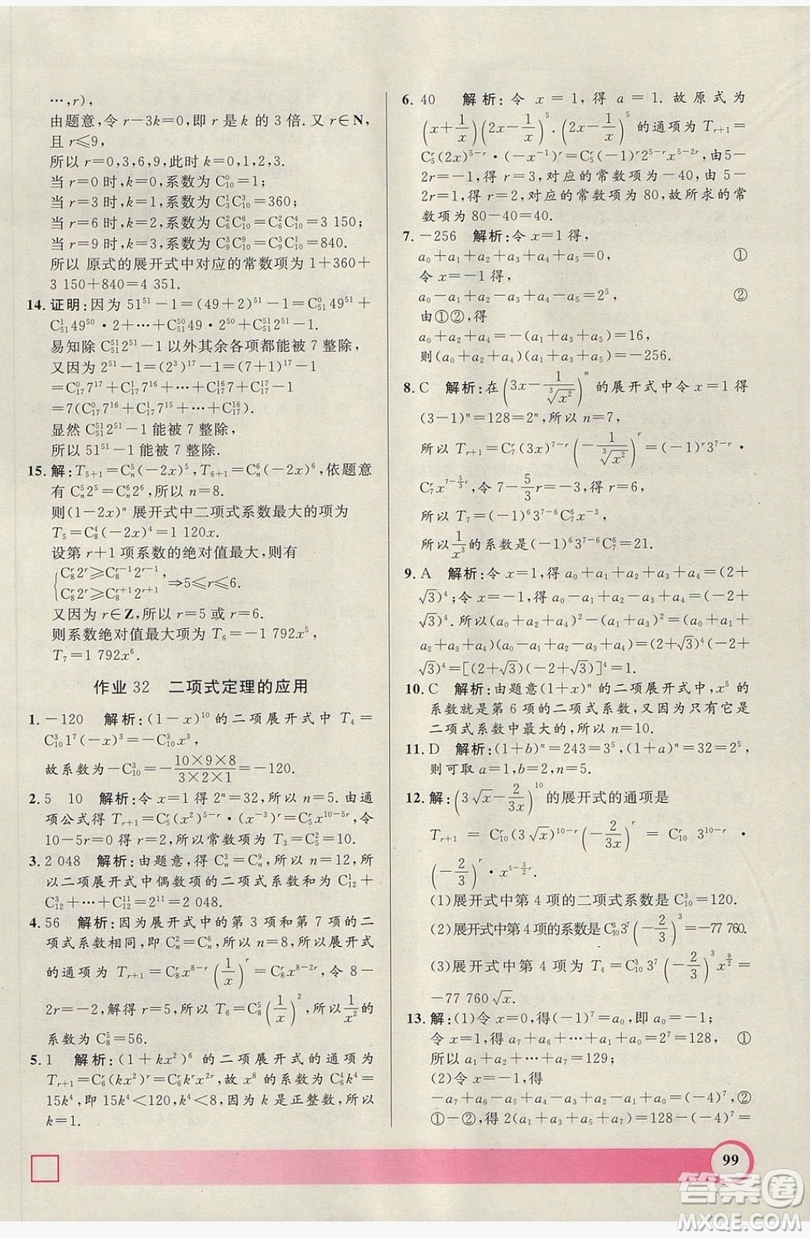 …,r),
由题意,令 r−3k=0,即 r 是 k 的 3 倍. 又 r∈N,
且 r⩽9,
所以 r=0,3,6,9,此时 k=0,1,2,3.
当 r=0 时,k=0,系数为 C₁₀⁰=1;
当 r=3 时,k=1,系数为 C₃¹C₁₀³=360;
当 r=6 时,k=2,系数为 C₆²C₁₀⁶=3 150;
当 r=9 时,k=3,系数为 C₉³C₁₀⁹=840.
所以 原式的展开式中对应的常数项为 1+360+
3 150+840=4 351.
14. 证明:因为 51⁵¹−1=(49+2)⁵¹−1=C₅₁⁰49⁵¹+
C₅₁¹49⁵⁰·2+…+C₅₁⁵⁰49·2⁵⁰+C₅₁⁵¹2⁵¹−1.
易知除 C₅₁⁵¹2⁵¹−1 以外其余各项都能被 7 整除.
又因为 2⁵¹−1=(2³)¹⁷−1=(7+1)¹⁷−1
=C₁₇⁰7¹⁷+C₁₇¹7¹⁶+…+C₁₇¹⁶7+C₁₇¹⁷−1
=7(C₁₇⁰7¹⁶+C₁₇¹7¹⁵+…+C₁₇¹⁶).
显然 C₅₁⁵¹2⁵¹−1 能被 7 整除,
所以 51⁵¹−1 能被 7 整除.
15. 解:T₅₊₁=Cₙ⁵(−2x)⁵,T₆₊₁=Cₙ⁶(−2x)⁶,依题意
有 Cₙ⁵2⁵=Cₙ⁶2⁶,所以 n=8.
则(1−2x)ⁿ 展开式中二项式系数最大的项为
T₅=C₈⁴(−2x)⁴=1 120x⁴.
设第 r+1 项系数的绝对值最大,则有
{C₈ʳ2ʳ⩾C₈ʳ⁻¹2ʳ⁻¹, C₈ʳ2ʳ⩾C₈ʳ⁺¹2ʳ⁺¹ ⇒5⩽r⩽6.
又因为 r∈Z,所以 r=5 或 r=6.
则系数绝对值最大项为 T₆=−1 792x⁵,
T₇=1 792x⁶.
作业 32 二项式定理的应用
1. −120 解析:(1−x)¹⁰的二项展开式中 T₄=
C₁₀³1⁷(−x)³=−C₁₀³x³,
故系数为−C₁₀³=−(10×9×8)/(3×2×1)=−120.
2. 5 10 解析:令 x=1 得 2ⁿ=32,所以 n=5,由通
项公式得 Tᵣ₊₁=C₅ʳ(x²)⁵⁻ʳ·(x⁻³)ʳ=C₅ʳx¹⁰⁻⁵ʳ,令
10−5r=0,得 r=2,所以常数项 T₃=C₅²=10.
3. 2 048 解析:由题意,得 Cₙ³=Cₙ⁹,所以 n=12,所
以二项展开式中偶数项的二项式系数之和为
C₁₂¹+C₁₂³+…+C₁₂¹¹=2¹¹=2 048.
4. 56 解析:因为展开式中的第 3 项和第 7 项的二
项式系数相同,即 Cₙ²=Cₙ⁶,所以 n=8,所以展开式
的通项为 Tᵣ₊₁=C₈ʳx⁸⁻ʳ(1/x)ʳ=C₈ʳx⁸⁻²ʳ,令 8−
2r=−2,解得 r=5,所以 T₆=C₈⁵(1/x)²,所以1/x²的
系数为 C₈⁵=56.
5. 1 解析:(1+kx²)⁶ 的二项展开式的通项为
Tᵣ₊₁=C₆ʳ(kx²)ʳ=C₆ʳkʳx²ʳ,故 x⁸ 的系数为 C₆⁴k⁴=
15k⁴,即 15k⁴<120,也即 k⁴<8,而 k 是正整数,所
以 k=1.
6. 40 解析:令 x=1,得 a=1. 故原式为
(x+1/x)(2x−1/x)⁵.(2x−1/x)⁵的通项为 Tᵣ₊₁=
C₅ʳ(2x)⁵⁻ʳ·(−x⁻¹)ʳ=C₅ʳ(−1)ʳ2⁵⁻ʳx⁵⁻²ʳ,由5−
2r=1,得 r=2,对应的常数项为 80,由 5−2r=
−1,得 r=3,对应的常数项为−40,故所求的常数
项为 80−40=40.
7. −256 解析:令 x=1 得,
a₀+a₁+a₂+a₃+a₄+a₅=0, ①
令 x=−1 得,
a₀−a₁+a₂−a₃+a₄−a₅=2⁵, ②
由①②,得
a₀+a₂+a₄=16,a₁+a₃+a₅=−16,
则(a₀+a₂+a₄)(a₁+a₃+a₅)=−256.
8. C 解析:在(3x−1/∛x²)ⁿ的展开式中令 x=1 得
(3−1)ⁿ=128=2ⁿ,所以 n=7,
所以 Tᵣ₊₁=C₇ʳ(3x)⁷⁻ʳ(−1/∛x²)ʳ=(−1)ʳ3⁷⁻ʳ·
C₇ʳx^(7−5/3 r),令 7−5/3 r=−3,得 r=6,
所以 T₇=(−1)⁶3⁷⁻⁶C₇⁶x⁻³,
所以1/x³的系数是 C₇⁶·3=21.
9. A 解析:令 x=1,得 a₀+a₁+a₂+a₃+a₄=(2+
√3)⁴;令 x=−1,得 a₀−a₁+a₂−a₃+a₄=(−2+
√3)⁴. 所以(a₀+a₂+a₄)²−(a₁+a₃)²=(a₀+a₁+
a₂+a₃+a₄)(a₀−a₁+a₂−a₃+a₄)=(2+
√3)⁴(−2+√3)⁴=[(2+√3)(−2+√3)]⁴=1.
10. C 解析:由题意(1+x)ⁿ 的二项展开式中,x⁵ 的
系数就是第 6 项的二项式系数,又因为只有它是
二项式系数中最大的,所以 n=10.
11. D 解析:(1+b)ⁿ=243=3⁵,(1+a)ⁿ=32=2⁵,
则可取 a=1,b=2,n=5.
12. 解:(3√x−2/3x)¹⁰的展开式的通项是
Tᵣ₊₁=C₁₀ʳ(3√x)¹⁰⁻ʳ(−2/3x)ʳ=C₁₀ʳ 3¹⁰⁻ʳ
(−2/3)ʳ·x^(5−3r/2).
(1)展开式中第 4 项的二项式系数是 C₁₀³=120.
(2)展开式中第 4 项的系数是 C₁₀³3⁷(−2/3)³=−77 760.
(3)展开式中第 4 项为 T₄=C₁₀³3⁷(−2/3)³x^(9/2)=
−77 760√x.
13. 解:(1)令 x=0,得(−1)⁷=a₀,即 a₀=−1,
令 x=1,得 a₀+a₁+a₂+…+a₇=2⁷=128, ①
所以 a₁+a₂+…+a₇=129;
(2)令 x=−1,得
−a₇+a₆−a₅+a₄−a₃+a₂−a₁+a₀=(−4)⁷, ②
①−②,得 2(a₁+a₃+a₅+a₇)=128−(−4)⁷=
99
答案圈
MXQE.COM